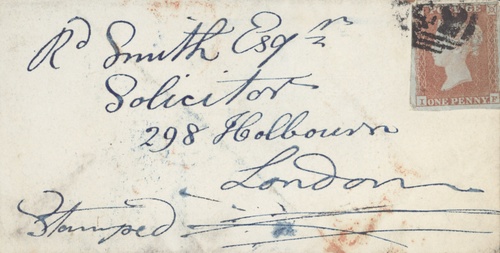 Rd Smith Esqr
Solicitor
298 Holbourn
London
Stamped
ONE PENNY